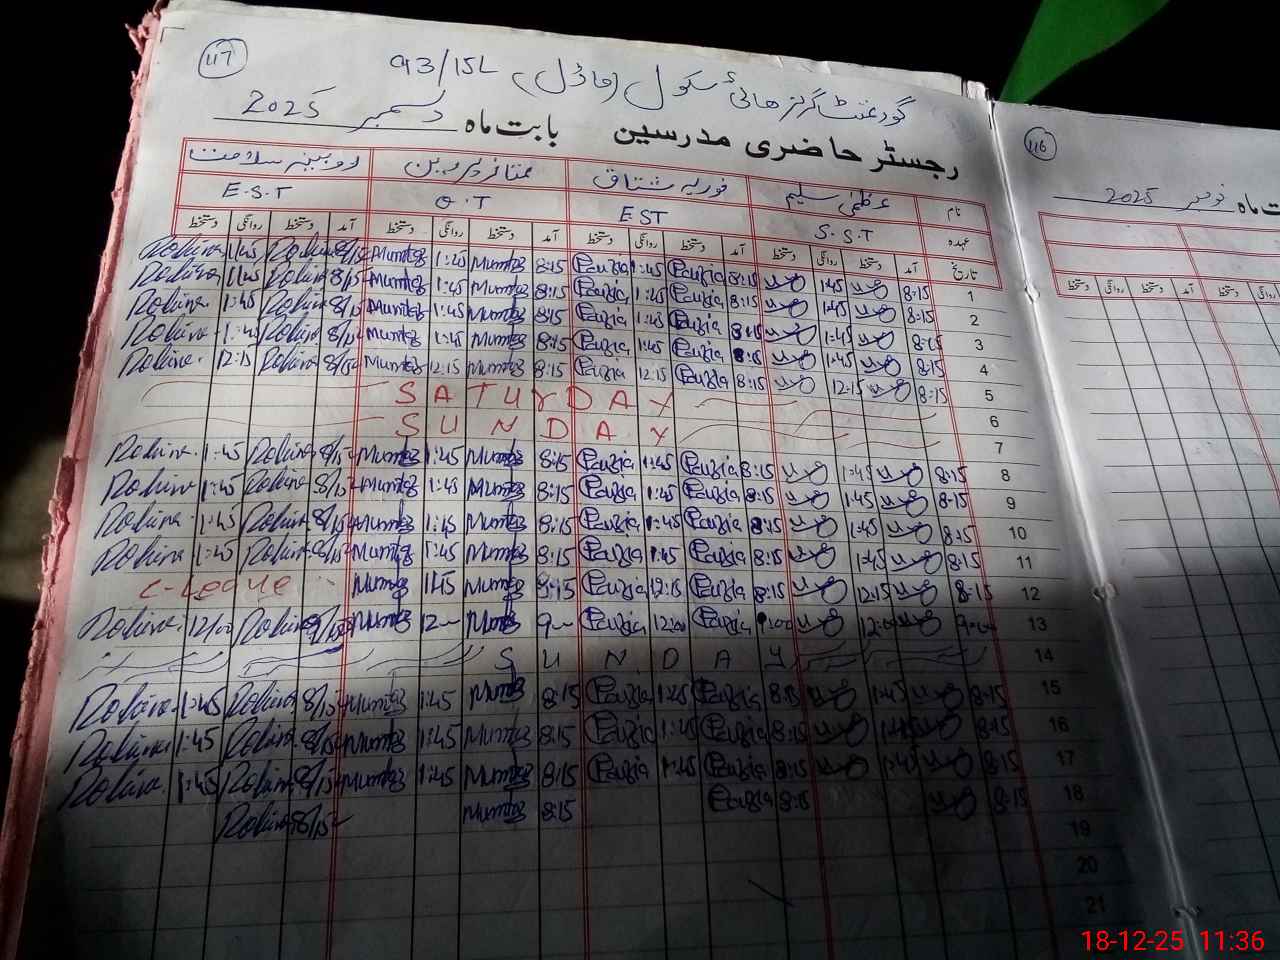 117
گورنمنٹ گرلز ھائی سکول (ماڈل) 93/15L
رجسٹر حاضری مدرسین بابت ماہ دسمبر 2025
نام عظمیٰ سلیم فوزیہ مشتاق ممتاز پروین روبینہ سلامت
عہدہ S.S.T EST O.T E.S.T
تاریخ آمد دستخط روانگی دستخط آمد دستخط روانگی دستخط آمد دستخط روانگی دستخط آمد دستخط روانگی دستخط
1 8:15 1:45 8:15 Fauzia 1:45 Fauzia 8:15 Mumtaz 1:45 Mumtaz 8/15 Robina 1:45 Robina
2 8:15 1:45 8:15 Fauzia 1:45 Fauzia 8:15 Mumtaz 1:45 Mumtaz 8/15 Robina 1:45 Robina
3 8:15 1:45 8:15 Fauzia 1:45 Fauzia 8:15 Mumtaz 1:45 Mumtaz 8/15 Robina 1:45 Robina
4 8:15 1:45 8:15 Fauzia 1:45 Fauzia 8:15 Mumtaz 1:45 Mumtaz 8/15 Robina 1:45 Robina
5 8:15 12:15 8:15 Fauzia 12:15 Fauzia 8:15 Mumtaz 12:15 Mumtaz 8/15 Robina 12:15 Robina
6 SATURDAY
7 SUNDAY
8 8:15 1:45 8:15 Fauzia 1:45 Fauzia 8:15 Mumtaz 1:45 Mumtaz 8/15 Robina 1:45 Robina
9 8:15 1:45 8:15 Fauzia 1:45 Fauzia 8:15 Mumtaz 1:45 Mumtaz 8/15 Robina 1:45 Robina
10 8:15 1:45 8:15 Fauzia 1:45 Fauzia 8:15 Mumtaz 1:45 Mumtaz 8/15 Robina 1:45 Robina
11 8:15 1:45 8:15 Fauzia 1:45 Fauzia 8:15 Mumtaz 1:45 Mumtaz 8/15 Robina 1:45 Robina
12 8:15 12:15 8:15 Fauzia 12:15 Fauzia 8:15 Mumtaz Mumtaz C-Leave
13 9:00 12:00 9:00 Fauzia 12:00 Fauzia 9 Mumtaz 12 Mumtaz Robina 12/00 Robina
14 SUNDAY
15 8:15 1:45 8:15 Fauzia 1:45 Fauzia 8:15 Mumtaz 1:45 Mumtaz 8/15 Robina 1:45 Robina
16 8:15 1:45 8:15 Fauzia 1:45 Fauzia 8:15 Mumtaz 1:45 Mumtaz 8/15 Robina 1:45 Robina
17 8:15 1:45 8:15 Fauzia 1:45 Fauzia 8:15 Mumtaz 1:45 Mumtaz 8/15 Robina 1:45 Robina
18 8:15 8:15 Fauzia 8:15 Mumtaz 8/15 Robina
19
20
21
116
ماہ نومبر 2025
آمد دستخط روانگی دستخط
روانگی دستخط
18-12-25 11:36